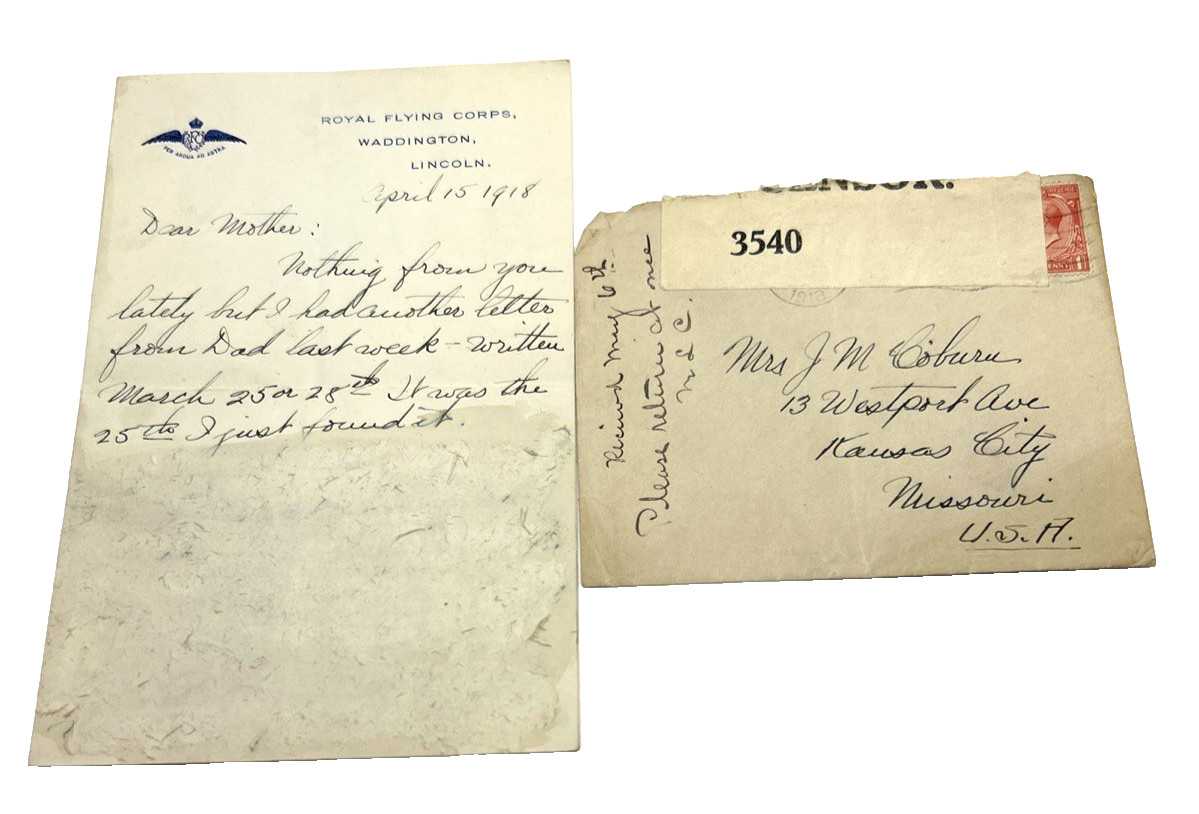 RFC
PER ARDUA AD ASTRA
ROYAL FLYING CORPS,
WADDINGTON,
LINCOLN.
April 15 1918
Dear Mother:
Nothing from you
lately but I had another letter
from Dad last week - written
March 25 or 28th It was the
25th I just found it.
CENSOR.
3540
1918
Mrs J M Coburn
13 Westport Ave
Kansas City
Missouri
U.S.A.
Recieved May 6th
Please return at once